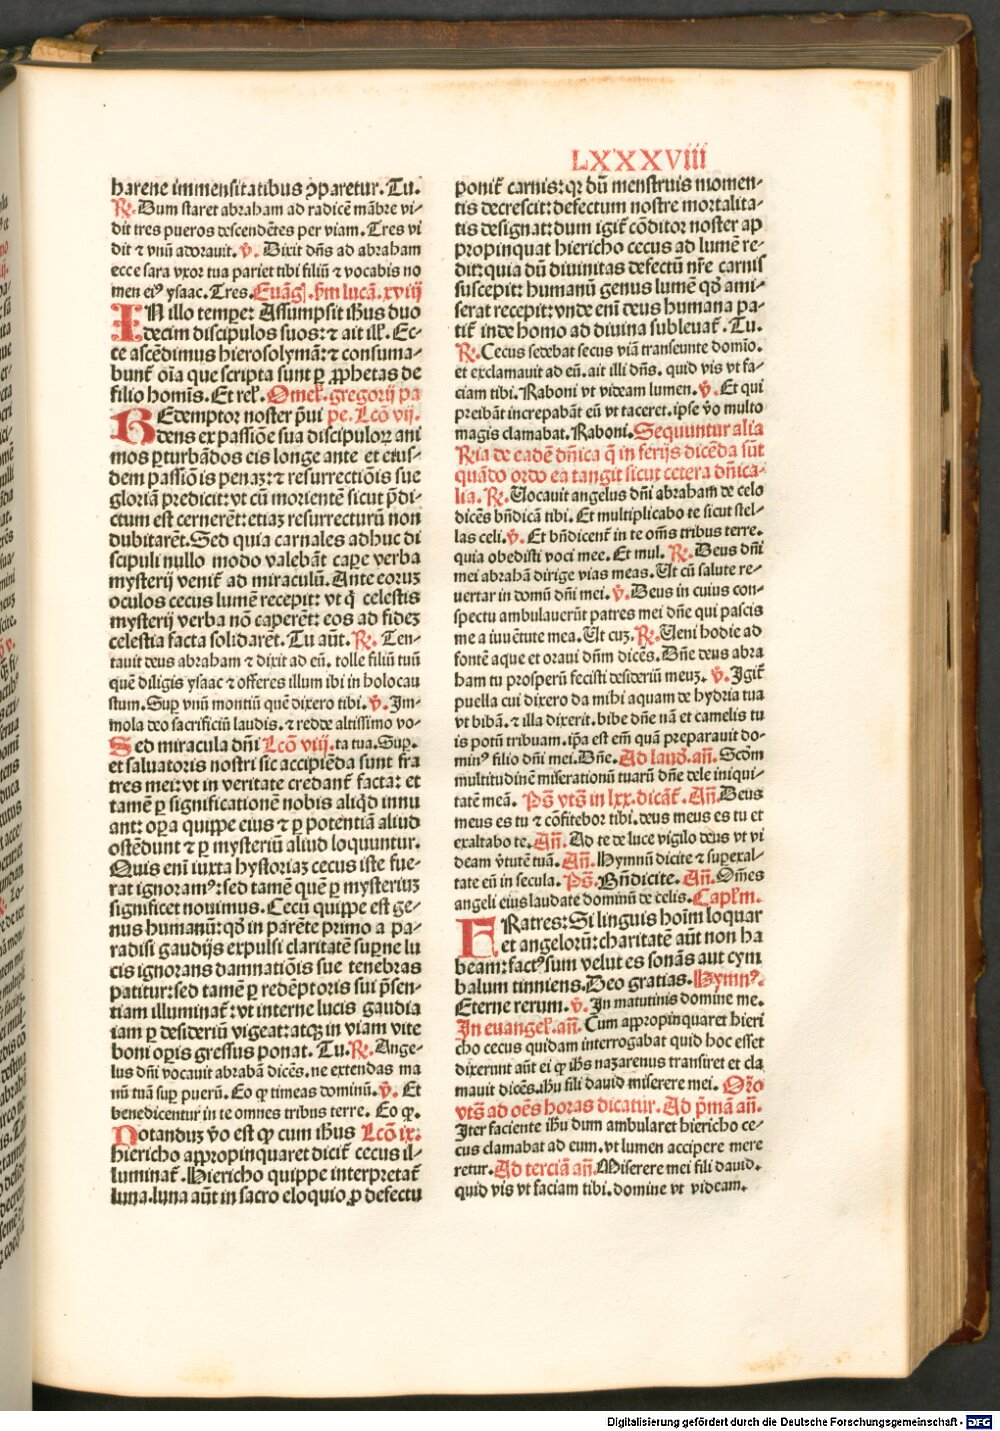 LXXXVIII
harene immensitatibus ↄparetur. Tu.
℟. Dum staret abraham ad radicē mābre vi⸗
dit tres pueros descendētes per viam. Tres vi
dit ⁊ vnū adorauit. ℣. Dixit dn̄s ad abraham
ecce sara vxor tua pariet tibi filiū ⁊ vocabis no
men eiꝰ ysaac. Tres. Euāg̃. ẜm lucā. xviij
IN illo tempe: Assumpsit ih̄us duo
decim discipulos suos: ⁊ ait ill̓. Ec⸗
ce ascēdimus hierosolymā: ⁊ consuma⸗
bunt̄ oīa que scripta sunt ꝑ ꝓphetas de
filio homīs. Et rel̓. Omel̓. gregorij pa
REdemptor noster p̄ui pe. Lcō vij.
dens ex passiōe sua discipuloꝝ ani
mos ꝑturbādos eis longe ante et eius⸗
dem passiōis penaꝫ: ⁊ resurrectiōis sue
gloriā predicit: vt cū morientē sicut p̄di⸗
ctum est cernerēt: etiaꝫ resurrecturū non
dubitarēt. Sed quia carnales adhuc di
scipuli nullo modo valebāt caꝑe verba
mysterij venit̄ ad miraculū. Ante eoruꝫ
oculos cecus lumē recepit: vt q̄ celestis
mysterij verba nō caperēt: eos ad fideꝫ
celestia facta solidarēt. Tu aūt. ℟. Ten⸗
tauit deus abraham ⁊ dixit ad eū. tolle filiū tuū
quē diligis ysaac ⁊ offeres illum ibi in holocau
stum. Suꝑ vnū montiū quē dixero tibi. ℣. Im⸗
mola deo sacrificiū laudis. ⁊ redde altissimo vo⸗
Sed miracula dn̄i Lcō viij. ta tua. Suꝑ.
et saluatoris nostri sic accipiēda sunt fra
tres mei: vt in veritate credant̄ facta: et
tamē ꝑ significationē nobis aliqd̄ innu
ant: oꝑa quippe eius ⁊ ꝑ potentiā aliud
ostēdunt ⁊ ꝑ mysteriū aliud loquuntur.
Quis enī iuxta hystoriaꝫ cecus iste fue⸗
rat ignoramꝰ: sed tamē quē ꝑ mysteriuꝫ
significet nouimus. Cecū quippe est ge⸗
nus humanū: qd̄ in parēte primo a pa⸗
radisi gaudijs expulsi claritatē suꝑne lu
cis ignorans damnatiōis sue tenebras
patitur: sed tamē ꝑ redēptoris sui p̄sen⸗
tiam illuminat̄: vt interne lucis gaudia
iam ꝑ desideriū vigeat: atqꝫ in viam vite
boni oꝑis gressus ponat. Tu. ℟. Ange⸗
lus dn̄i vocauit abrabā dicēs. ne extendas ma
nū tuā suꝑ puerū. Eo ꝙ timeas dominū. ℣. Et
benedicentur in te omnes tribus terre. Eo ꝙ.
Notanduꝫ v̄o est ꝙ cum ih̄us Lcō ix.
hiericho appropinquaret dicit̄ cecus il⸗
luminat̄. Hiericho quippe interpretat̄
luna. luna aūt in sacro eloquio ꝓ defectu
ponit̄ carnis: qꝛ dū menstruis momen⸗
tis decrescit: defectum nostre mortalita⸗
tis designat: dum igit̄ cōditor noster ap
propinquat hiericho cecus ad lumē re⸗
dit: quia dū diuinitas defectū nr̄e carnis
suscepit: humanū genus lumē qd̄ ami⸗
serat recepit: vnde enī deus humana pa⸗
tit̄ inde homo ad diuina subleuat̄. Tu.
℟. Cecus sedebat secus viā transeunte domīo.
et exclamauit ad eū. ait illi dn̄s. quid vis vt fa⸗
ciam tibi. Raboni vt videam lumen. ℣. Et qui
preibāt increpabāt eū vt taceret. ipse v̄o multo
magis clamabat. Raboni. Sequuntur alia
Rīa de eadē dn̄ica q̄ in ferijs dicēda sūt
quādo ordo ea tangit sicut cetera dn̄ica⸗
lia. ℟. Uocauit angelus dn̄i abraham de celo
dicēs bn̄dicā tibi. Et multiplicabo te sicut stel⸗
las celi. ℣. Et bn̄dicent̄ in te om̄s tribus terre.
quia obedisti voci mee. Et mul. ℟. Deus dn̄i
mei abrahā dirige vias meas. Ut cū salute re⸗
uertar in domū dn̄i mei. ℣. Deus in cuius con⸗
spectu ambulauerūt patres mei dn̄e qui pascis
me a iuuētute mea. Ut cuꝫ. ℟. Ueni hodie ad
fontē aque et oraui dn̄m dicēs. Dn̄e deus abra
ham tu prosperū fecisti desideriū meuꝫ. ℣. Igit̄
puella cui dixero da mihi aquam de hydria tua
vt bibā. ⁊ illa dixerit. bibe dn̄e nā et camelis tu
is potū tribuam. ip̄a est em̄ quā preparauit do⸗
minꝰ filio dn̄i mei. Dn̄e. Ad laud̓. an̄. Scd̄m
multitudinē miserationū tuarū dn̄e dele iniqui⸗
tatē meā. Ps̄ vts̄ in lxx. dicāt̄. An̄. Deus
meus es tu ⁊ cōfitebor tibi. deus meus es tu et
exaltabo te. An̄. Ad te de luce vigilo deus vt vi
deam v̄tutē tuā. An̄. Hymnū dicite ⁊ suꝑexal⸗
tate eū in secula. Ps̄. Bn̄dicite. An̄. Om̄es
angeli eius laudate dominū de celis. Capl̓m.
FRatres: Si linguis hoīm loquar
et angelorū: charitatē aūt non ha
beam: factꝰ sum velut es sonās aut cym
balum tinniens. Deo gratias. Hymnꝰ.
Eterne rerum. ℣. In matutinis domine me.
In euangel̓. an̄. Cum appropinquaret hieri
cho cecus quidam interrogabat quid hoc esset
dixerunt aūt ei ꝙ ih̄s nazarenus transiret et cla
mauit dicēs. ih̄u fili dauid miserere mei. Or̄o
vts̄ ad oēs horas dicatur. Ad p̄mā an̄.
Iter faciente ih̄u dum ambularet hiericho ce⸗
cus clamabat ad eum. vt lumen accipere mere
retur. Ad terciā an̄. Miserere mei fili dauid.
quid vis vt faciam tibi. domine vt videam.
Digitalisierung gefördert durch die Deutsche Forschungsgemeinschaft - DFG